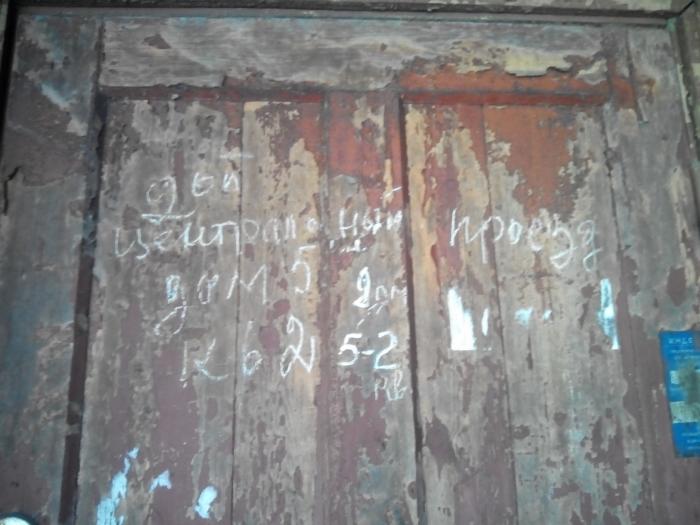 2ой
центральный проезд
дом 5 2дм
кв 2 5-2
кв